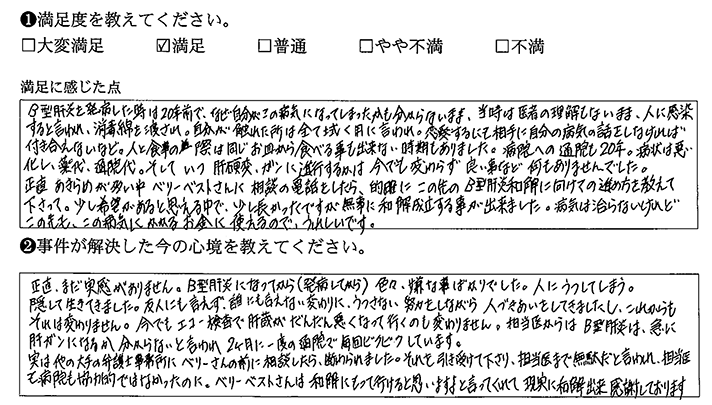 ❶満足度を教えてください。
□大変満足 ☑満足 □普通 □やや不満 □不満
満足に感じた点
B型肝炎を発病した時は20年前で、なぜ自分がこの病気になってしまったかも分からないまま、当時は医者の理解もないまま、人に感染
すると言われ、消毒綿を渡され。自分が触れた所は全て拭く用に言われ。恋愛するにも相手に自分の病気の話をしなければ
付き合えないなど。人と食事の際は同じお皿から食べる事も出来ない時期もありました。病院への通院も20年。病状は悪
化し、薬代、通院代。そして いつ 肝硬変、ガンに進行するかは 今でも変わらず 良い事など 何もありませんでした。
正直 あきらめが多い中 ベリーベストさんに 相談の電話をしたら、的確に この先の B型肝炎和解に向けての進め方を教えて
下さって。少し希望があると思える中で、少し長かったですが無事に和解成立する事が出来ました。病気は治らないけれど
この先も、この病気にかかる お金に 使えるので、うれしいです。
❷事件が解決した今の心境を教えてください。
正直、まだ実感がありません。B型肝炎になってから(発病してから) 色々、嫌な事ばかりでした。人にうつしてしまう。
隠して生きてきました。友人にも言えず、誰にも言えない変わりに、うつさない 努力をしながら 人づきあいをしてきましたし、これからも
それは変わりません。今でも エコー検査で肝臓が だんだん悪くなって行くのも変わりません。担当医からは B型肝炎は、急に
肝ガンになるか 分からないと言われ 2ヶ月に一度の通院で毎回ビクビクしています。
実は他の大手の弁護士事務所に ベリーさんの前に 相談したら、断わられました。それでも引き受けて下さり、担当医まで無駄だと言われ、担当医
も病院も協力的ではなかったのに。ベリーベストさんは 和解にもって行けると思いますよと言ってくれて 現実に和解出来 感謝しております